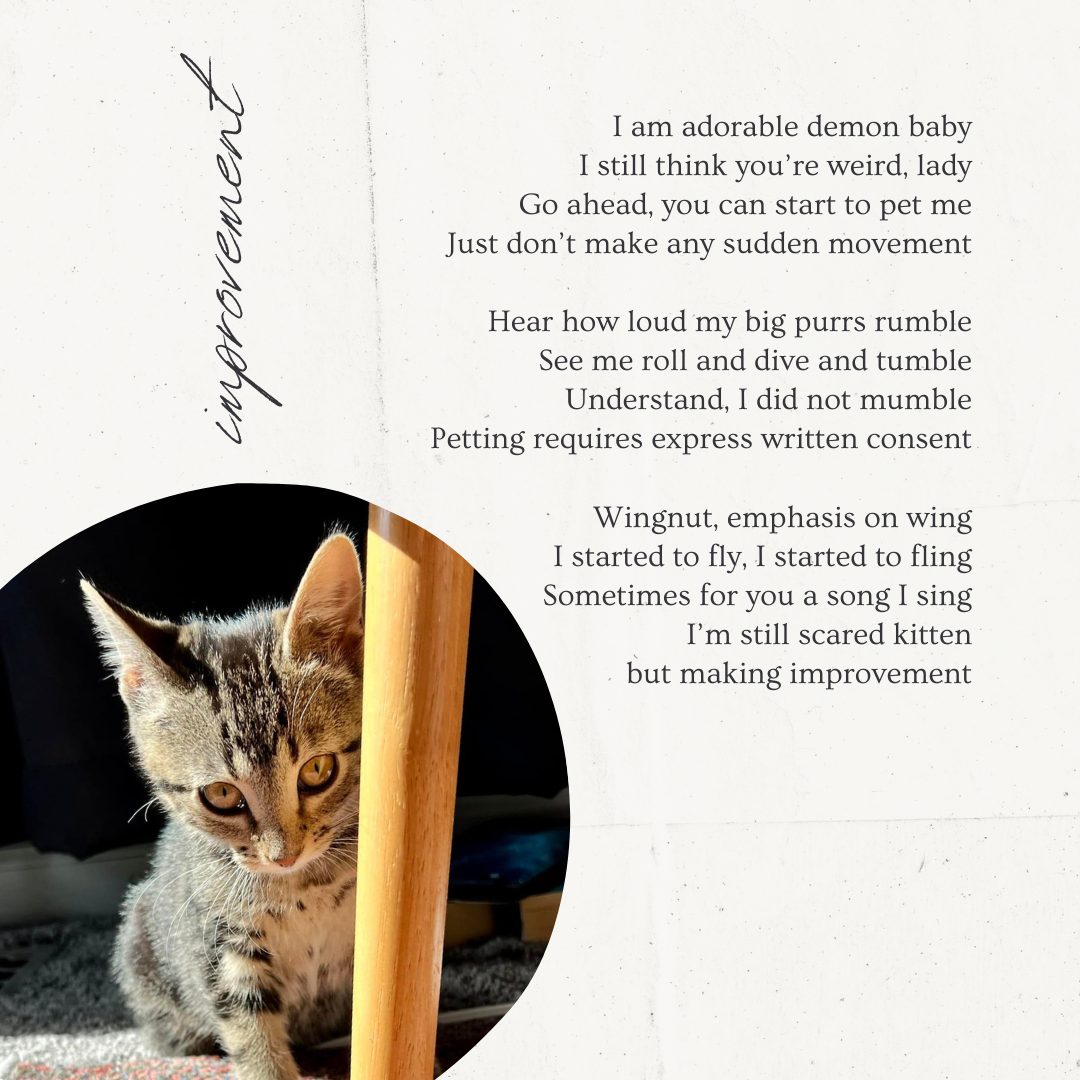 improvement
I am adorable demon baby
I still think you’re weird, lady
Go ahead, you can start to pet me
Just don’t make any sudden movement
Hear how loud my big purrs rumble
See me roll and dive and tumble
Understand, I did not mumble
Petting requires express written consent
Wingnut, emphasis on wing
I started to fly, I started to fling
Sometimes for you a song I sing
I’m still scared kitten
but making improvement